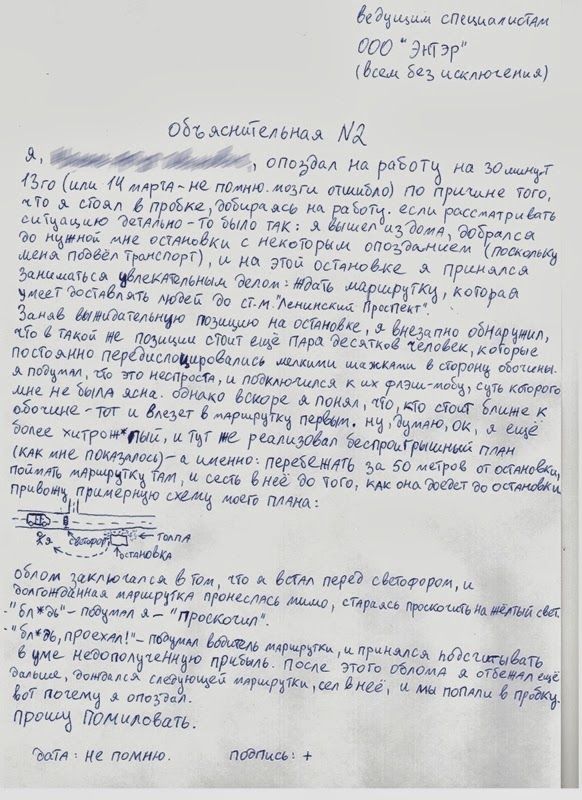 ведущим специалистам
ООО "Энтэр"
(всем без исключения)
Объяснительная №2
Я, , опоздал на работу на 30 минут
13го (или 14 марта - не помню. мозги отшибло) по причине того,
что я стоял в пробке, добираясь на работу. если рассматривать
ситуацию детально - то было так: я вышел из дома, добрался
до нужной мне остановки с некоторым опозданием (поскольку
меня подвёл транспорт), и на этой остановке я принялся
заниматься увлекательным делом: ждать маршрутку, которая
умеет доставлять людей до ст.м. "Ленинский Проспект".
Заняв выжидательную позицию на остановке, я внезапно обнаружил,
что в такой же позиции стоит ещё пара десятков человек, которые
постоянно передислоцировались мелкими шажками в сторону обочины.
я подумал, что это неспроста, и подключился к их флэш-мобу, суть которого
мне не была ясна. однако вскоре я понял, что, кто стоит ближе к
обочине - тот и влезет в маршрутку первым. ну, думаю, ок, я ещё
более хитрож*пый, и тут же реализовал беспроигрышный план
(как мне показалось) - а именно: перебежать за 50 метров от остановки,
поймать маршрутку там, и сесть в неё до того, как она доедет до остановки
привожу примерную схему моего плана:
я светофор толпа
остановка
облом заключался в том, что я встал перед светофором, и
долгожданная маршрутка пронеслась мимо, стараясь проскочить на жёлтый свет.
- "бл*дь" - подумал я - "Проскочил".
- "бл*дь, проехал!" - подумал водитель маршрутки, и принялся подсчитывать
в уме недополученную прибыль. После этого облома я отбежал ещё
дальше, дождался следующей маршрутки, сел в неё, и мы попали в пробку.
вот почему я опоздал.
прошу помиловать.
дата: не помню. подпись: +